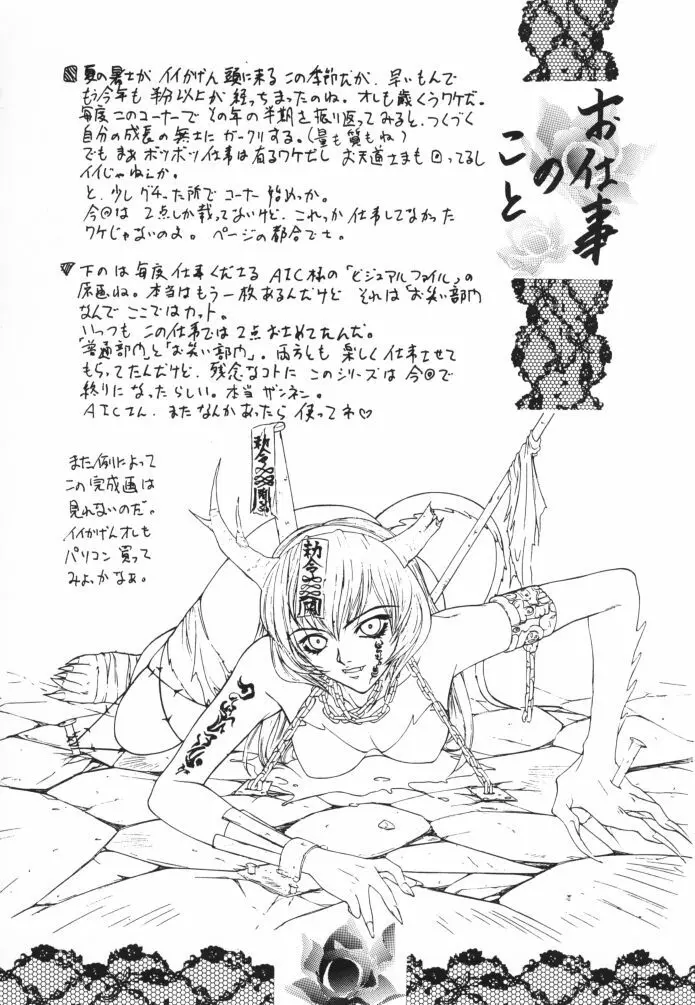 お仕事
の
こと
夏の暑さが イイかげん 頭に来る この季節だが、早いもんで
もう今年も 半分以上が 経っちまったのね。オレも歳くうワケだ。
毎度 このコーナーで その年の半期を 振り返ってみると、つくづく
自分の成長の無さに ガークリする。(量も質もね)
でも まぁ ボツボツ仕事は有るワケだし お天道さまも 回ってるし
イイじゃねぇか。
と、少しグチった所で コーナー 始めっか。
今回は 2点しか載ってないけど、これっか 仕事してなかった
ワケじゃないのよ。ページの都合でさ。
下のは 毎度 仕事くださる AIC様の「ビジュアルファイル」の
原画ね。本当はもう一枚あるんだけど それは「お笑い部門」
なんで ここではカット。
いつも この仕事では 2点おさめてたんだ。
「普通部門」と「お笑い部門」。両方とも 楽しく 仕事させて
もらってたんだけど、残念なコトに このシリーズは 今回で
終りになったらしい。本当 ザンネン。
AICさん、またなんかあったら 使ってネ♡
また例によって
この完成画は
見れないのだ。
イイかげんオレも
パソコン 買って
みよっかなぁ。
勅令
勅令